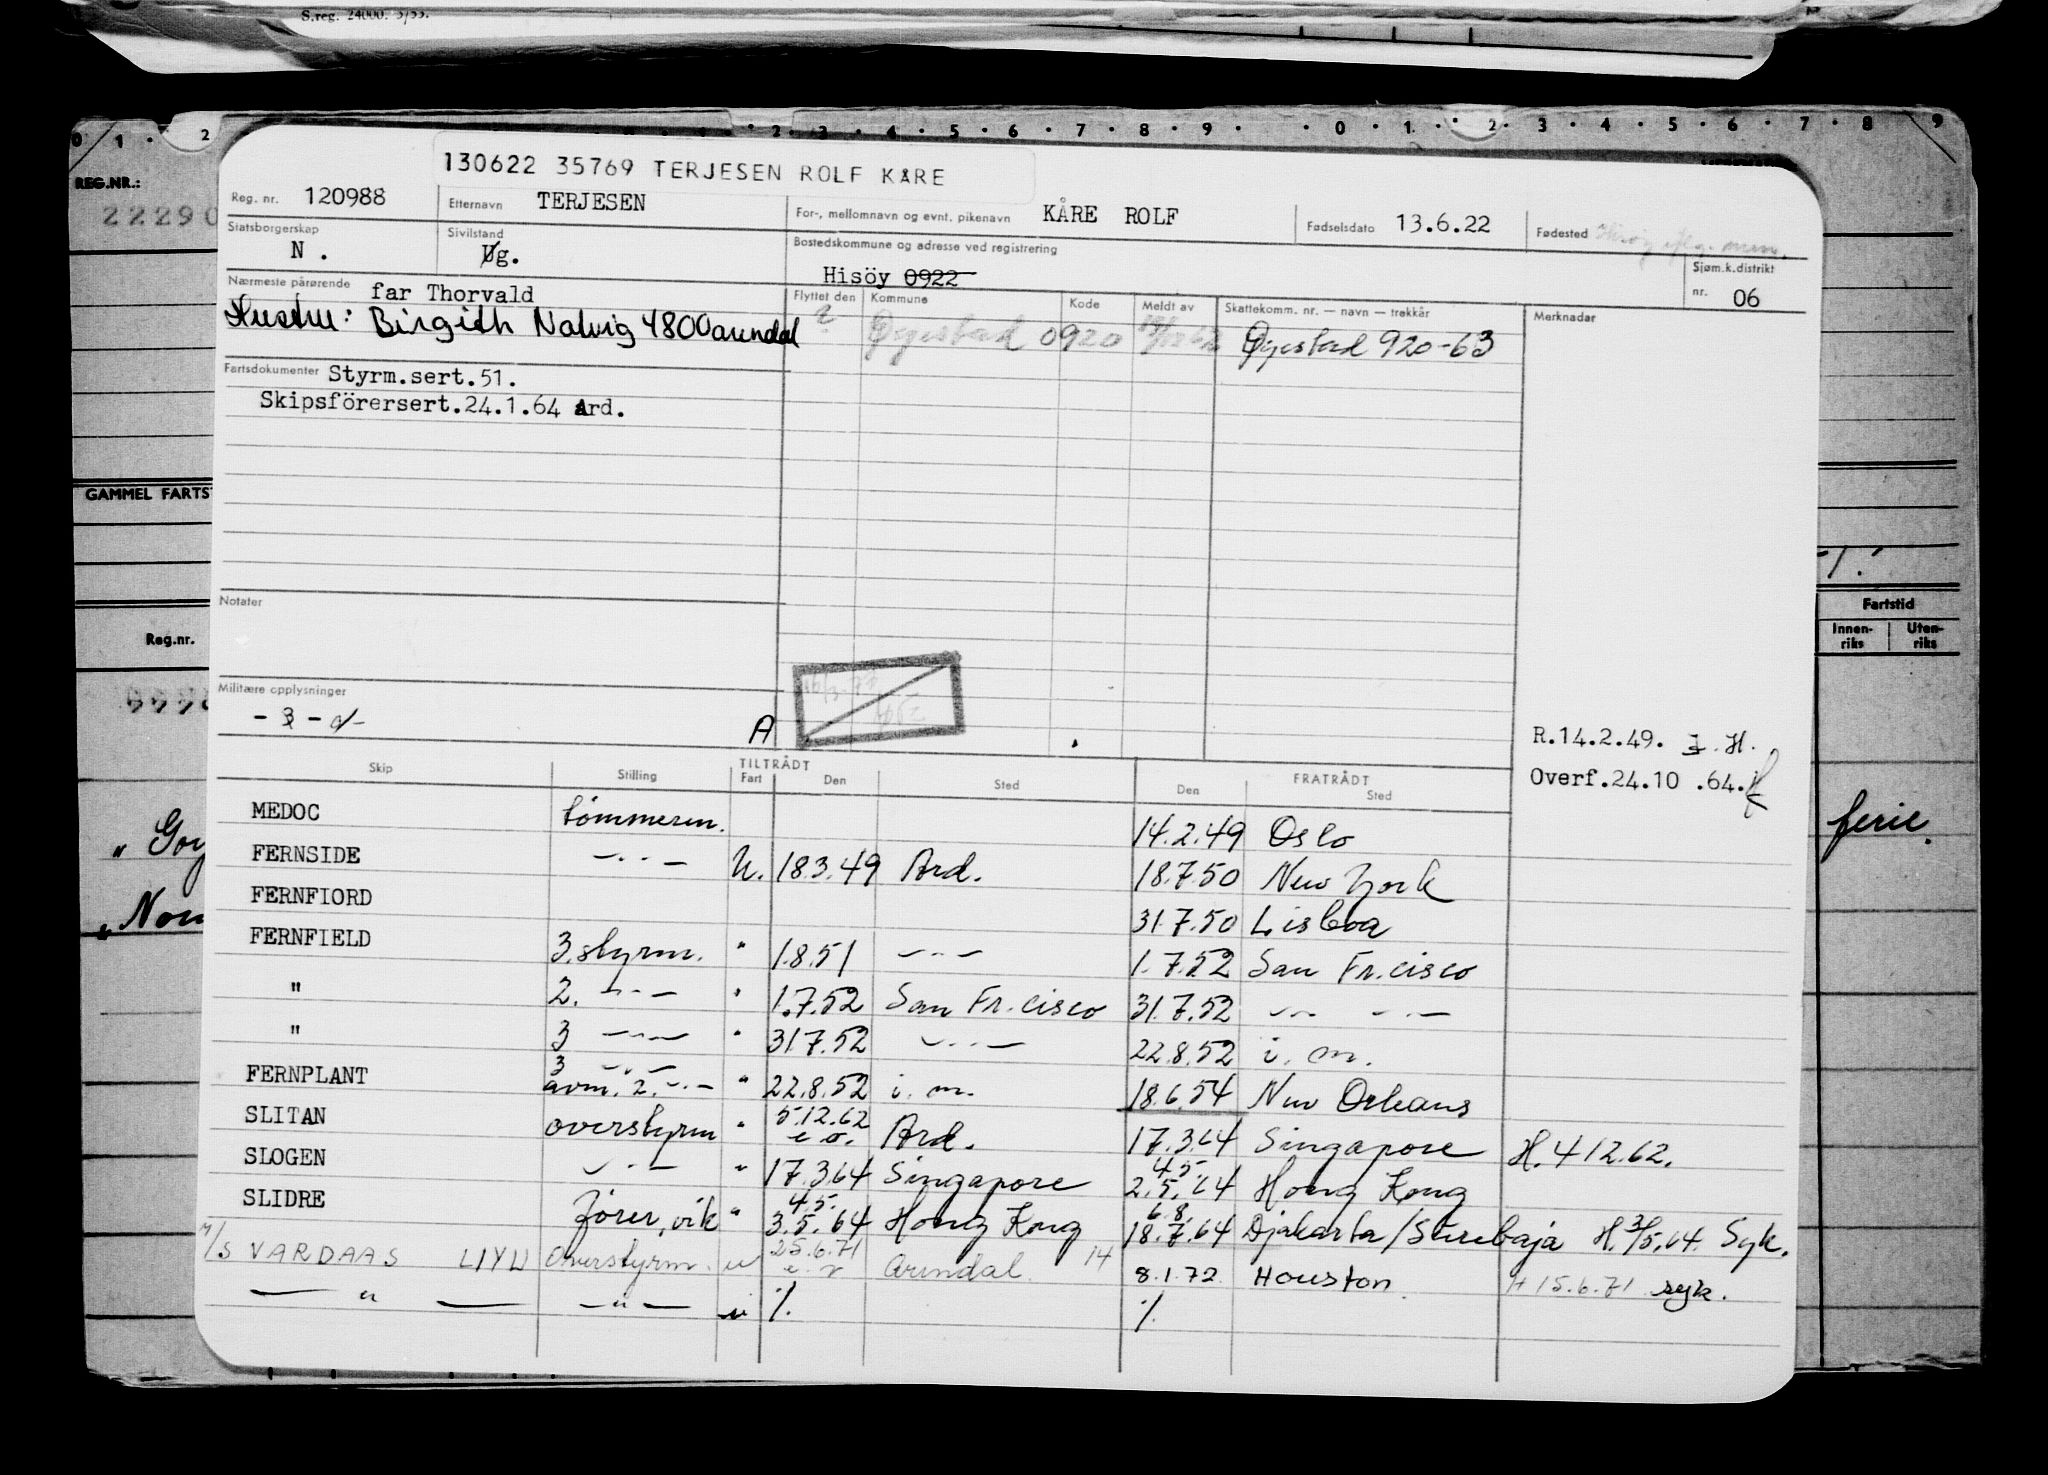 S.reg. 24000. 5/55.
0 1 · 2 2 · 3 · 4 · 5 · 6 · 7 · 8 · 9 · · 0 · 1 · · 2 · 3 · 4 · 5 · 6 · 7 · 8 · 9
130622 35769 TERJESEN ROLF KÅRE
REG.NR.:
22290
Reg. nr. 120988 Etternavn TERJESEN For-, mellomnavn og evnt. pikenavn KÅRE ROLF Fødselsdato 13.6.22 Fødested
Statsborgerskap N . Sivilstand Ug. Bostedskommune og adresse ved registrering
Hisöy 0922 Sjøm.k.distrikt nr. 06
Nærmeste pårørende far Thorvald
Hustru: Birgith Nalvig 4800 arendal
Flyttet den Kommune Kode Meldt av Skattekomm. nr. — navn — trekkår Merknader
? Øyestad 0920 Øyestad 920-63
Fartsdokumenter Styrm.sert.51.
Skipsförersert.24.1.64 Ard.
GAMMEL FARTST
Notater
Reg.nr.
Fartstid
Innen-riks Uten-riks
Militære opplysninger
- 3 - d-
A
R.14.2.49. I. H.
Overf.24.10 .64.
Skip Stilling TILTRÅDT Fart Den Sted FRATRÅDT Den Sted
MEDOC tömmerm. 14.2.49 Oslo
FERNSIDE —..— U. 18.3.49 Ard. 18.7.50 New York
FERNFIORD 31.7.50 Lisboa
FERNFIELD 3.styrm. " 1.8.51 —"— 1.7.52 San Fr.cisco
" 2. —"— " 1.7.52 San Fr.cisco 31.7.52 —"— —"—
" 3 —"— " 31.7.52 —"— 22.8.52 i. m.
FERNPLANT 3 —"— avm. 2. —"— " 22.8.52 i. m. 18.6.54 New Orleans
SLITAN overstyrm " 5.12.62 e o. Ard. 17.3.64 Singapore H.4 12.62.
SLOGEN —"— " 17.3.64 Singapore 4.5. 2.5.64 Hong Kong
SLIDRE fører, vik " 4.5. 3.5.64 Hong Kong 6.8. 18.7.64 Djakarta/Surabaja H.3/5.64. Syk.
M/S VARDAAS LIYU Overstyrm. u 25.6.71 Arendal. 14 8.1.72 Houston. H 15.6.71 syk.
— " — —"— u % %
" Gov
" Nor
ferie.